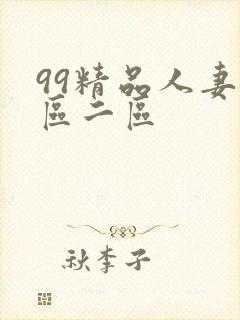 99精品人妻
區二區
秋李子